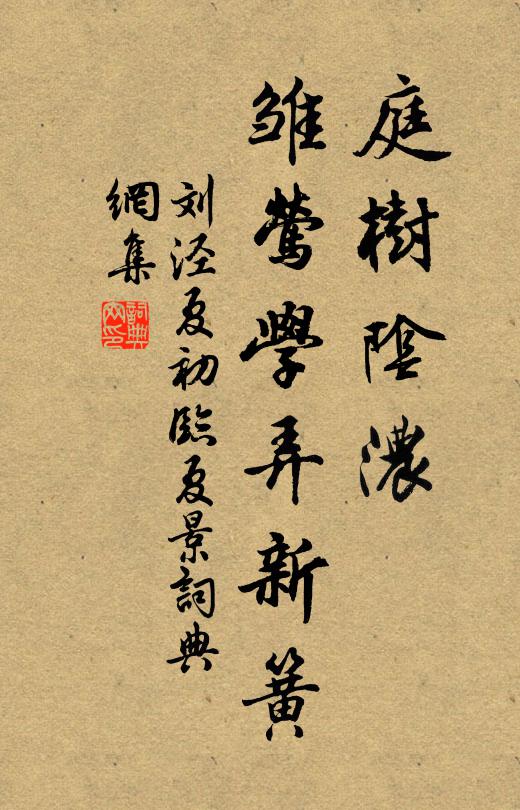 庭樹陰濃
雏鶯學弄新簧
刘泾夏初臨夏景詞典
網集
詞典
网印